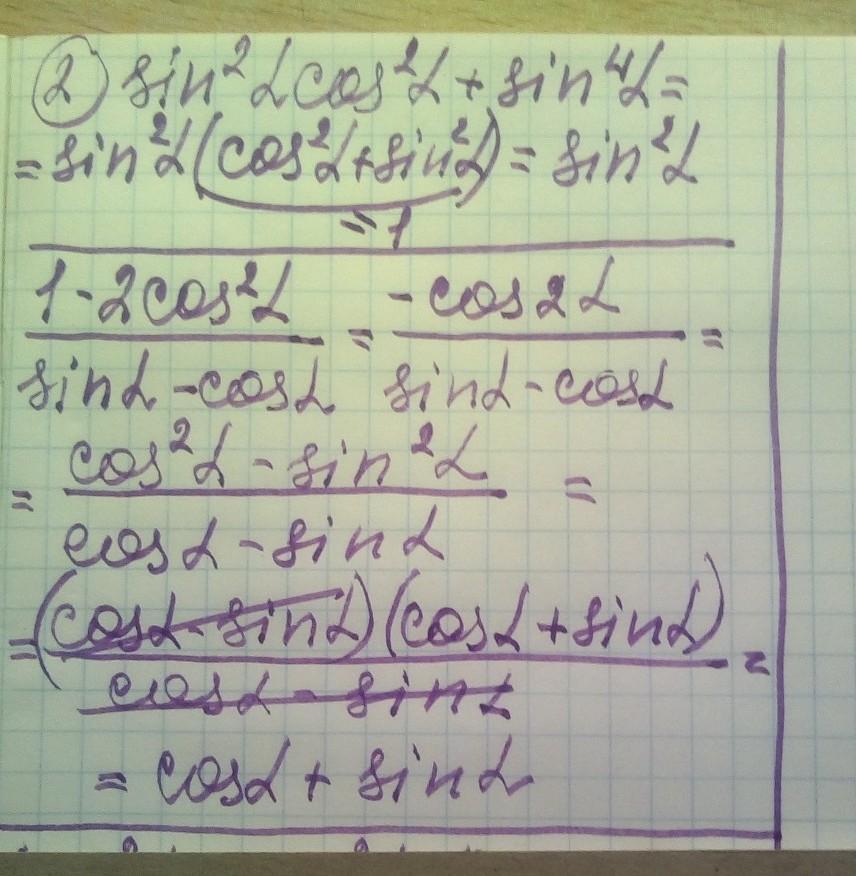 ② sin²α cos²α + sin⁴α =
= sin²α (cos²α + sin²α) = sin²α
= 1
1 - 2cos²α / sinα - cosα = - cos2α / sinα - cosα =
= cos²α - sin²α / cosα - sinα =
= (cosα - sinα)(cosα + sinα) / cosα - sinα =
= cosα + sinα